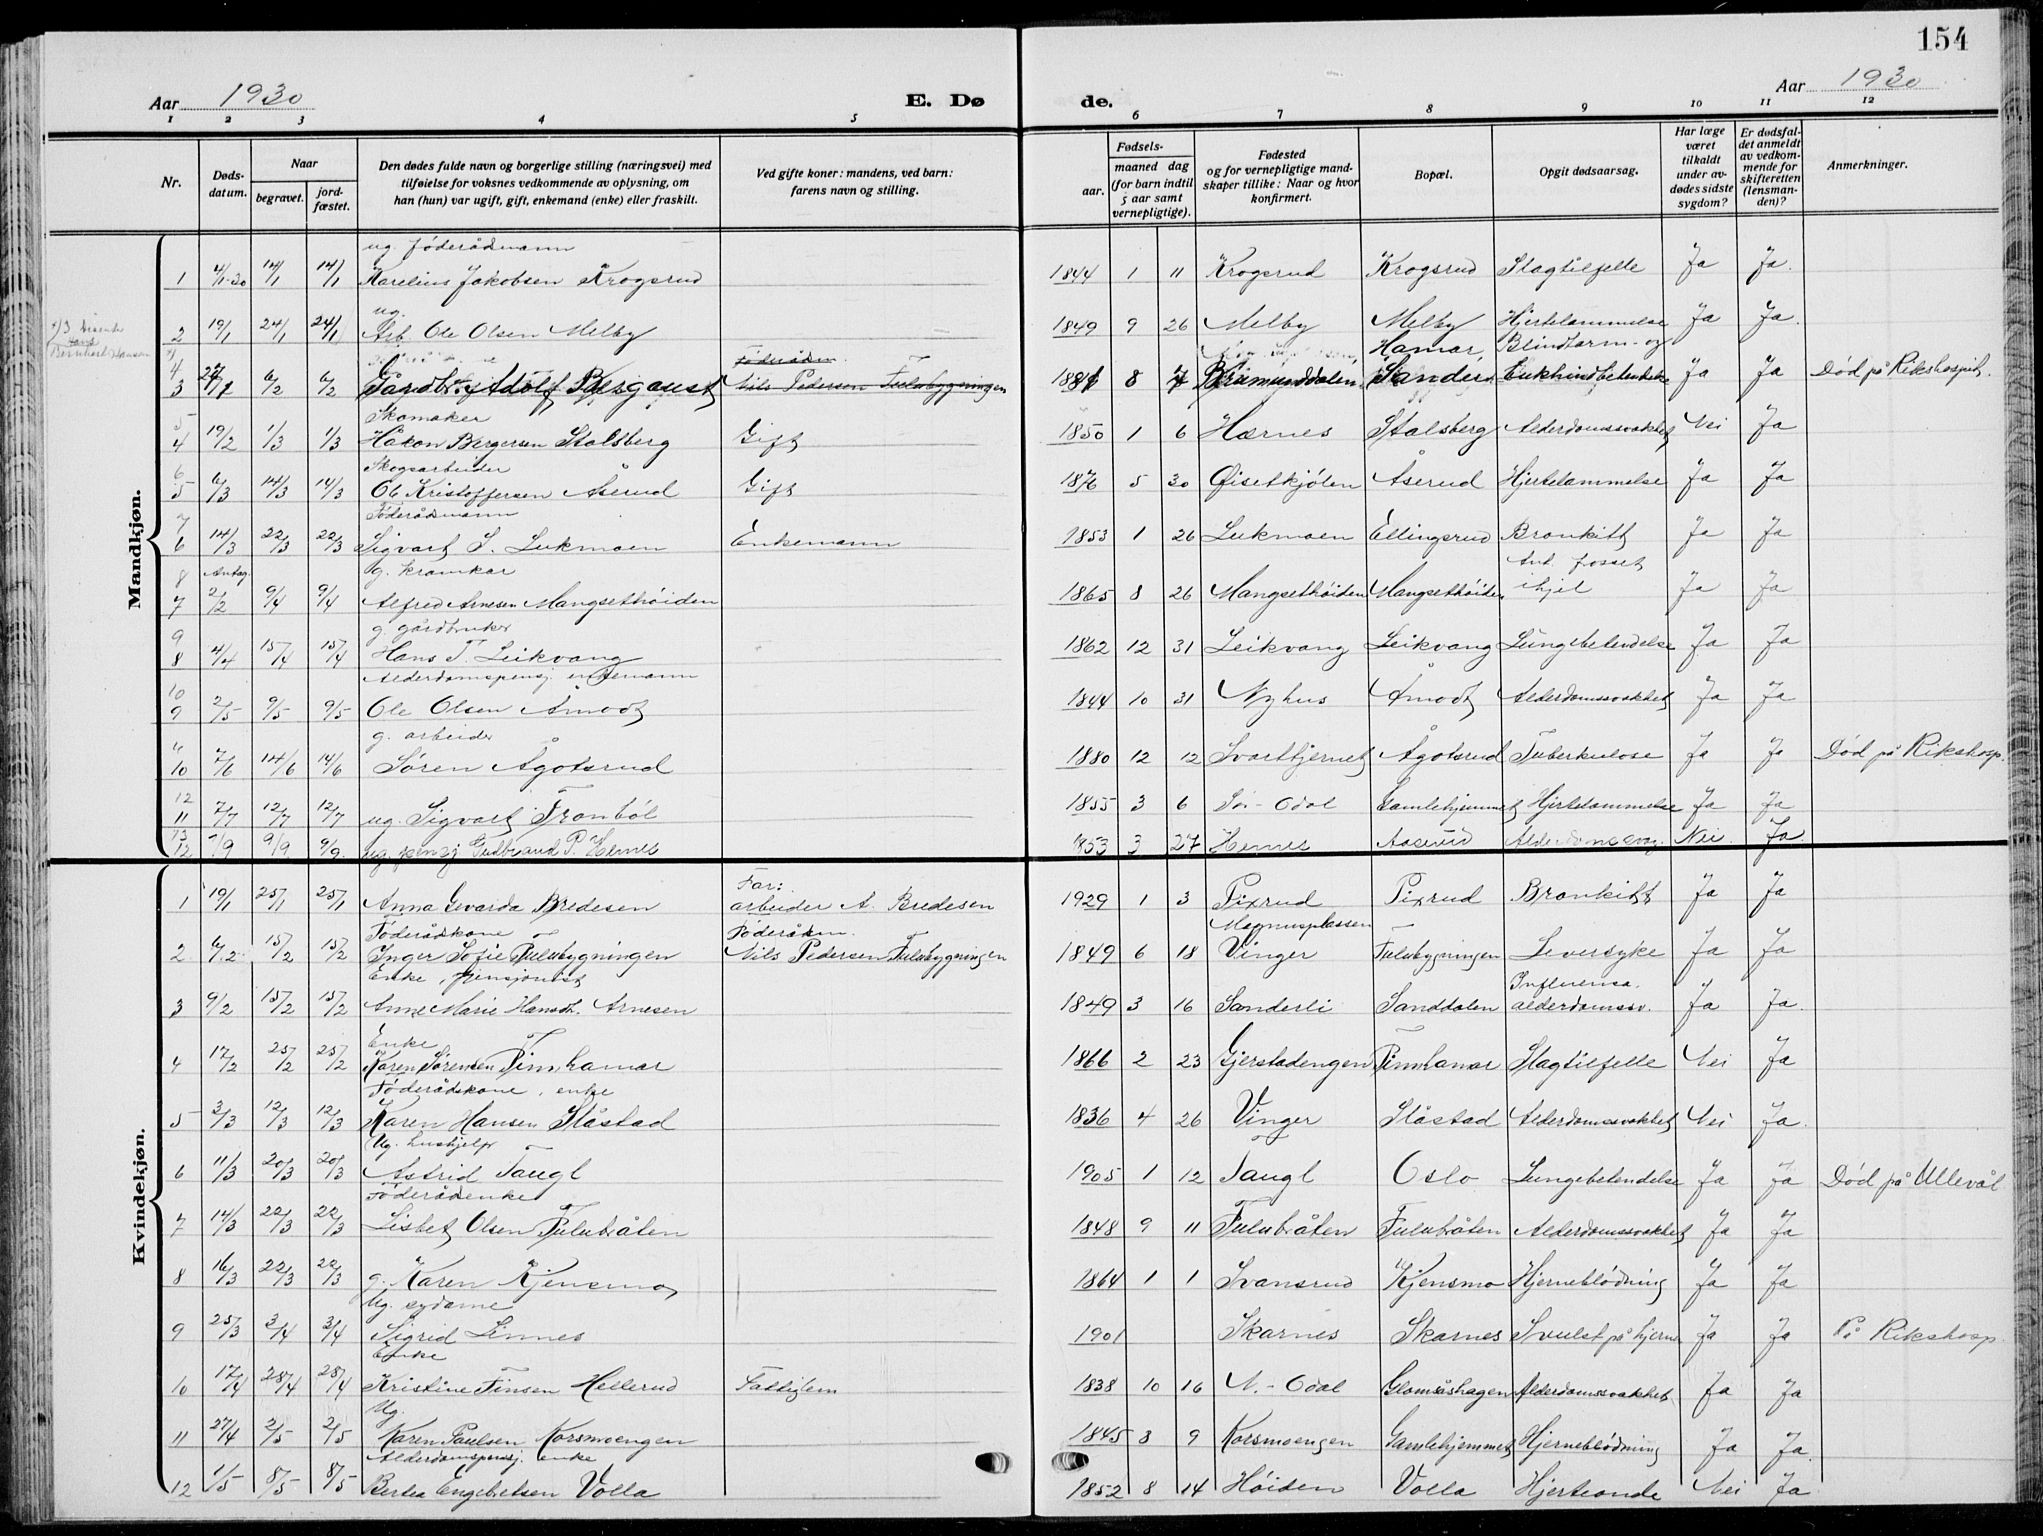 154
Aar 1930 E. Døde. Aar 1930
1 2 3 4 5 6 7 8 9 10 11 12
Nr. Døds-datum. Naar begravet. jord-fæstet. Den dødes fulde navn og borgerlige stilling (næringsvei) med tilføielse for voksnes vedkommende av oplysning, om han (hun) var ugift, gift, enkemand (enke) eller fraskilt. Ved gifte koner: mandens, ved barn: farens navn og stilling. Fødsels- aar. maaned dag (for barn indtil 5 aar samt vernepligtige). Fødested og for vernepligtige mandskaper tillike: Naar og hvor konfirmert. Bopæl. Opgit dødsaarsag. Har læge været tilkaldt under avdødes sidste sygdom? Er dødsfaldet anmeldt av vedkommende for skifteretten (lensmanden)? Anmerkninger.
Mandkjøn.
ug. føderådmann
1 4/1-30 14/1 14/1 Karelius Jakobsen Krogsrud 1844 1 11 Krogsrud Krogsrud Slagtilfelle Ja Ja.
ug.
2 19/1 24/1 24/1 Arb. Ole Olsen Melby 1849 9 26 Melby Melby Hjertelammelse Ja Ja.
Bernhard Hansen
Hamar, Blindtarm- og
4 3 6/2 6/2 Adolf Bergaust Nils Pedersen Fulubygningen 8 Sander Bukhindbetendelse Ja Ja Død på Rikshospit.
Skomaker
5 4 19/2 1/3 1/3 Håkon Bergersen Stalsberg Gift 1850 1 6 Hærnes Stalsberg Alderdomssvakhet Nei Ja
Skogsarbeider
6 5 6/3 14/3 14/3 Ole Kristoffersen Åserud Gift 1876 5 30 Øisetkjølen Åserud Hjertelammelse Ja Ja
Føderådmann
7 6 14/3 22/3 22/3 Sigvart S. Lukmoen Enkemann 1853 1 26 Lukmoen Ellingsrud Bronkitt Ja Ja
Antag. g. kramkar Ant. frosset
8 7 2/2 9/4 9/4 Alfred Arnesen Mangsethøiden 1865 8 26 Mangsethøiden Mangsethøiden ihjel Ja Ja
g. gårdbruker
9 8 4/4 15/4 15/4 Hans T. Leikvang 1862 12 31 Leikvang Leikvang Lungebetendelse Ja Ja
Alderdomspensj. enkemann
10 9 2/5 9/5 9/5 Ole Olsen Åmodt 1844 10 31 Nyhus Åmodt Alderdomssvakhet Ja Ja
g. arbeider
11 10 7/6 14/6 14/6 Søren Ågotsrud 1880 12 12 Svarttjernet Ågotsrud Tuberkulose Ja Ja Død på Rikshosp.
12 11 7/7 12/7 12/7 ug. Sigvart Tronbøl 1855 3 6 Sør-Odal Gamlehjemmet Hjertelammelse Ja Ja
13 12 9/9 9/9. ug. pensj Gudbrand P. Hernes 1853 3 27 Hernes Aaserud Nei Ja.
Kvindekjøn.
Far:
1 19/1 25/1 25/1 Anna Gevarda Bredesen arbeider A. Bredesen 1929 1 3 Pixrud Pixrud Bronkitt Ja Ja
Føderådkone Føderåkm. Magnusplassen
2 6/2 15/2 15/2 Inger Sofie Fulubygningen Nils Pedersen Fulubygningen 1849 6 18 Vinger Fulubygningen Leversyke Ja Ja
Enke, pensjonist Influensa.
3 9/2 15/2 15/2 Anne Marie Hansdt. Arnesen 1849 3 16 Sanderli Sanddalen alderdomssv. Ja Ja.
Enke
4 17/2 25/2 25/2 Karen Sørensen Timhamar 1866 2 23 Gjerstadengen Timhamar Slagtilfelle Nei Ja
Føderådskone, enke
5 3/3 12/3 12/3 Karen Hansen Slåstad 1836 4 26 Vinger Slåstad Alderdomssvakhet Nei Ja.
Ug. hushjelp
6 11/3 20/3 20/3 Astrid Taugl 1905 1 12 Taugl Oslo Lungebetendelse Ja Ja Død på Ullevål
Føderådenke
7 14/3 22/3 22/3 Lisbet Olsen Fulubråten 1848 9 11 Fulubråten Fulubråten Alderdomssvakhet Ja Ja
8 16/3 22/3 22/3 g. Karen Kjensmo 1864 1 1 Svansrud Kjensmo Hjerneblødning Ja Ja
Ug. sydame
9 25/3 3/4 3/4 Sigrid Linnes 1901 Skarnes Skarnes Svulst på hjerne Ja Ja På Rikshosp.
Enke
10 17/4 28/4 28/4 Kristine Finsen Hellerud Fattiglem 1838 10 16 N.-Odal Glomsåshagen Alderdomssvakhet Ja Ja
Ug.
11 27/4 2/5 2/5 Karen Paulsen Korsmoengen 1845 3 9 Korsmoengen Gamlehjemmet Hjerneblødning Ja Ja.
Alderdomspensj. enke
12 1/5 8/5 8/5 Bertea Engebretsen Volla 1852 8 14 Høiden Volla Hjerteonde Nei Ja.